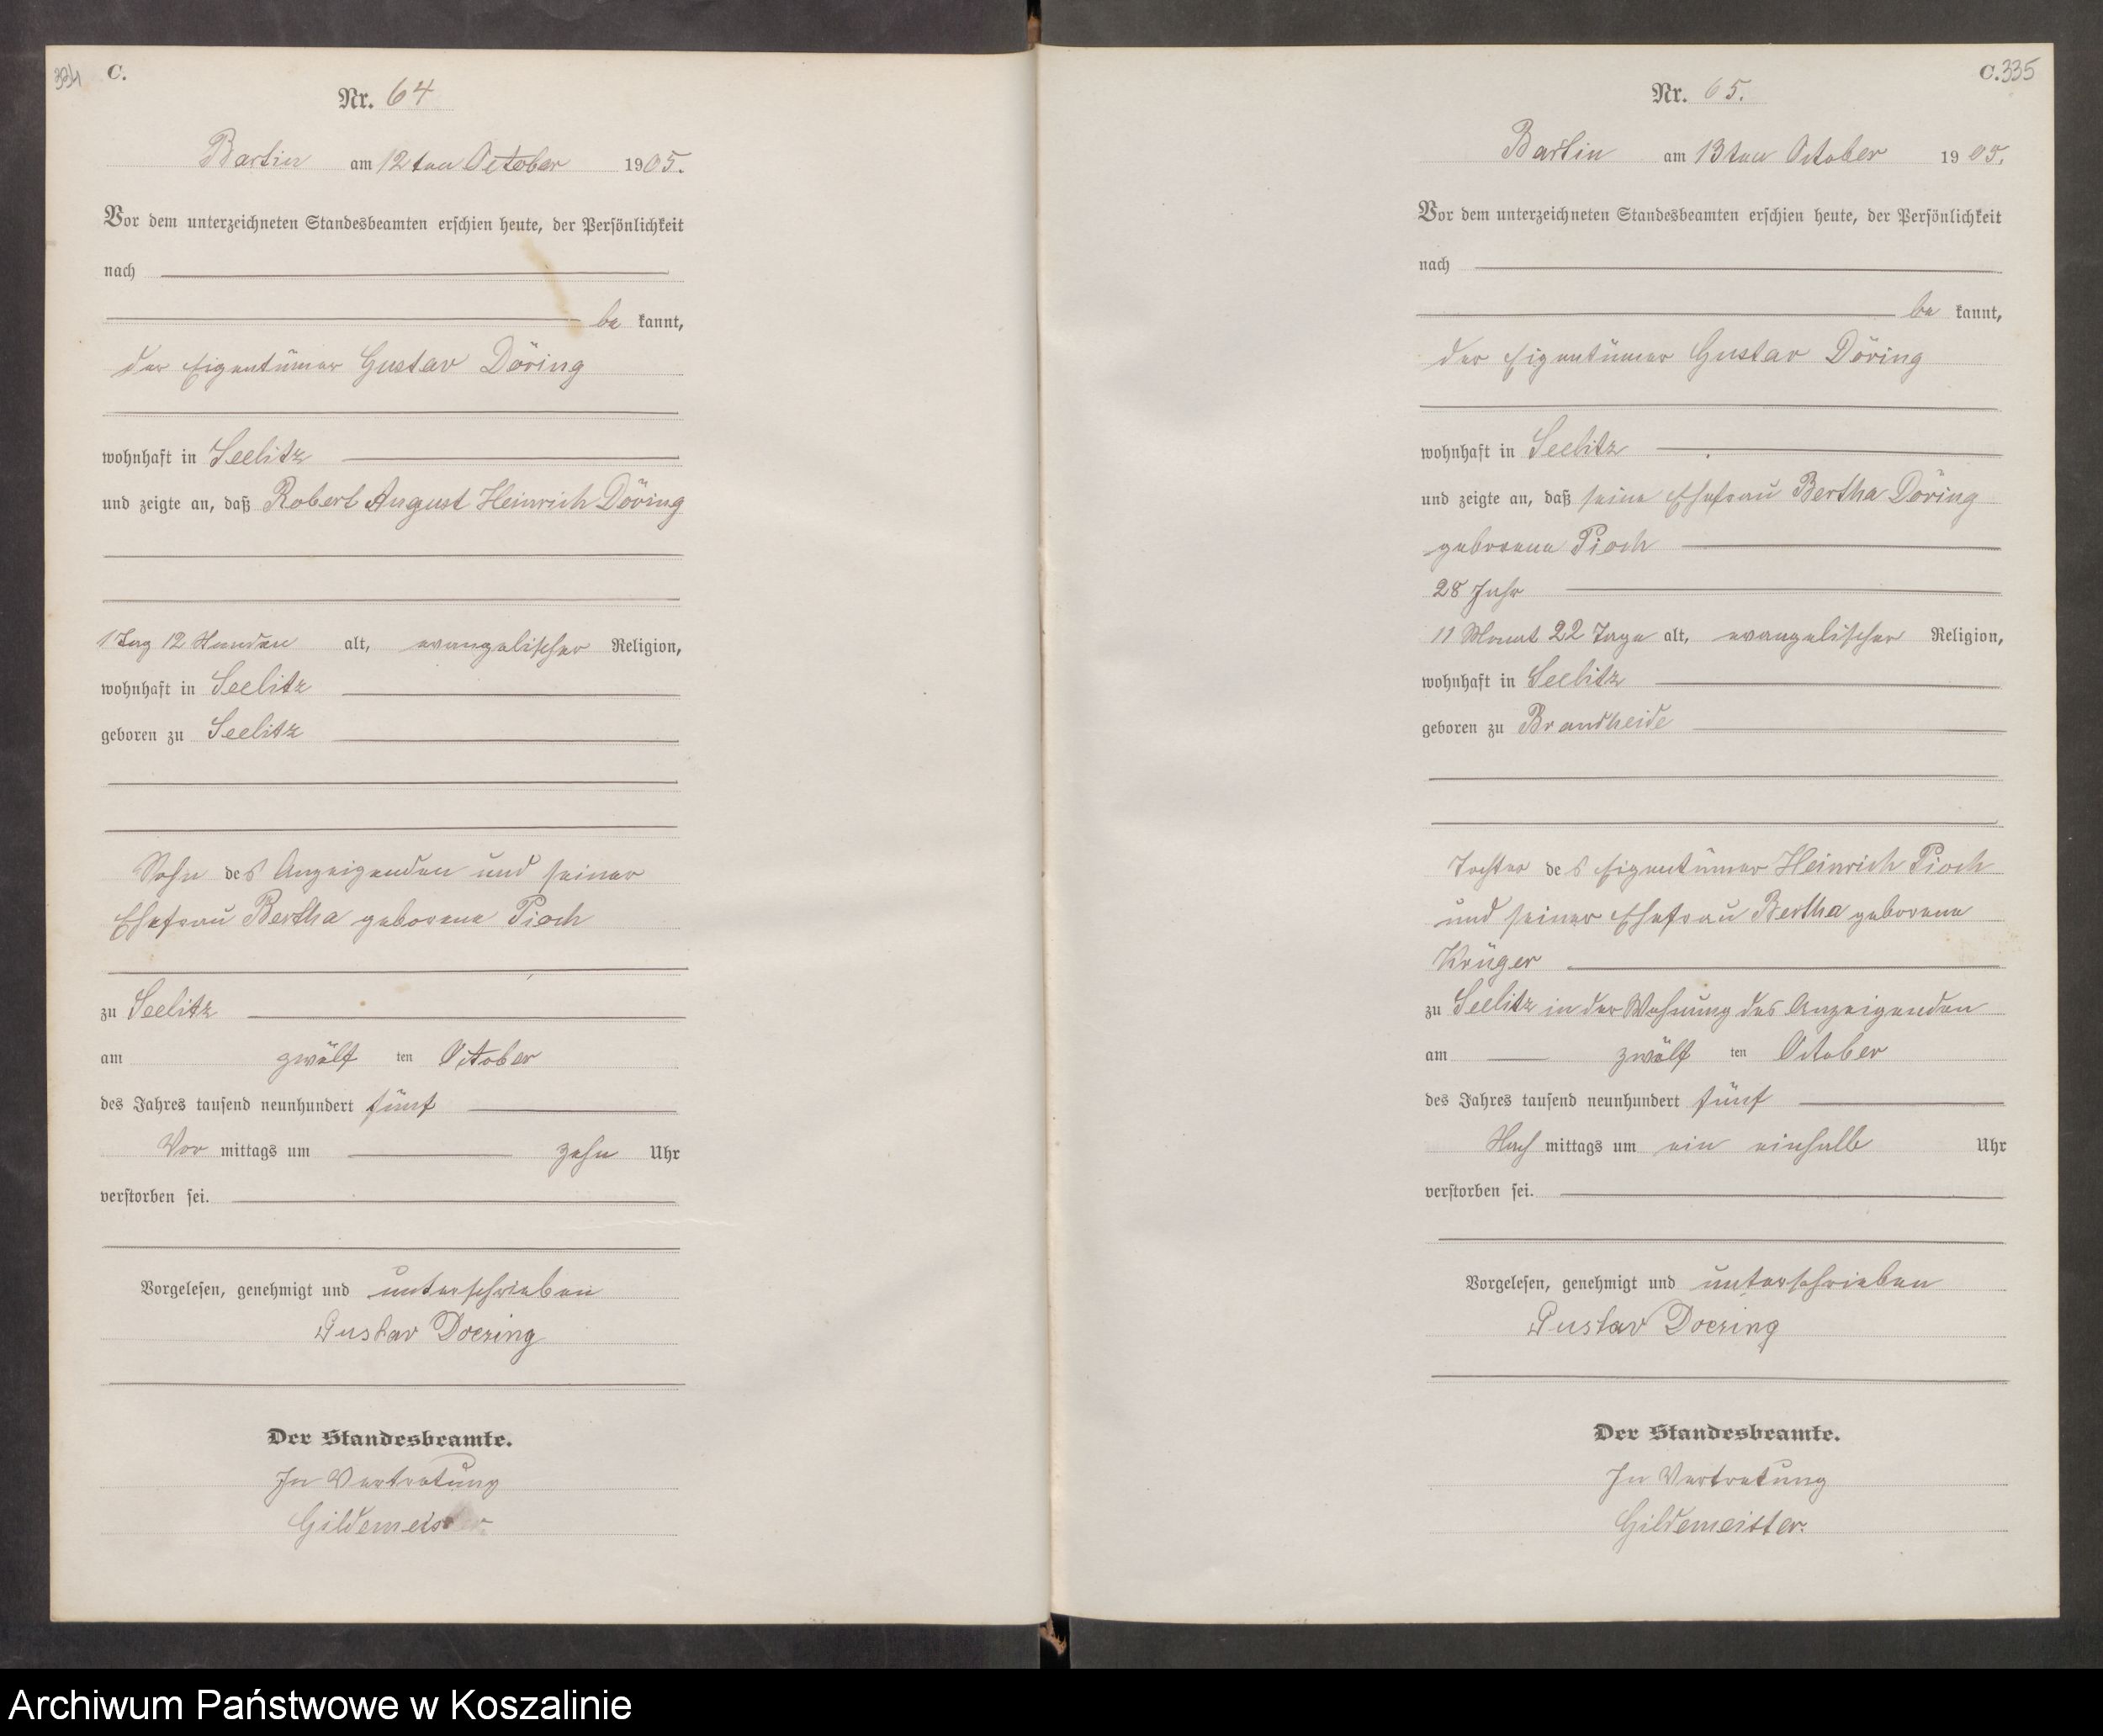 334
C.
Nr. 64
Bartin am 12ten October 1905.
Vor dem unterzeichneten Standesbeamten erschien heute, der Persönlichkeit
nach
be kannt,
der Eigentümer Gustav Döring
wohnhaft in Seelitz
und zeigte an, daß Robert August Heinrich Döring
1 Tag 12 Stunden alt, evangelischer Religion,
wohnhaft in Seelitz
geboren zu Seelitz
Sohn des Anzeigenden und seiner
Ehefrau Bertha geborene Pioch
zu Seelitz
am zwölf ten October
des Jahres tausend neunhundert fünf
Vor mittags um zehn Uhr
verstorben sei.
Vorgelesen, genehmigt und unterschrieben
Gustav Doering
Der Standesbeamte.
In Vertretung
Gildemeister
C. 335
Nr. 65.
Bartin am 13ten October 1905.
Vor dem unterzeichneten Standesbeamten erschien heute, der Persönlichkeit
nach
be kannt,
der Eigentümer Gustav Döring
wohnhaft in Seelitz
und zeigte an, daß seine Ehefrau Bertha Döring
geborene Pioch
28 Jahr
11 Monat 22 Tage alt, evangelischer Religion,
wohnhaft in Seelitz
geboren zu Brandheide
Tochter des Eigentümer Heinrich Pioch
und seiner Ehefrau Bertha geborene
Krüger
zu Seelitz in der Wohnung des Anzeigenden
am zwölf ten October
des Jahres tausend neunhundert fünf
Nach mittags um ein einhalb Uhr
verstorben sei.
Vorgelesen, genehmigt und unterschrieben
Gustav Doering
Der Standesbeamte.
In Vertretung
Gildemeister.
Archiwum Państwowe w Koszalinie